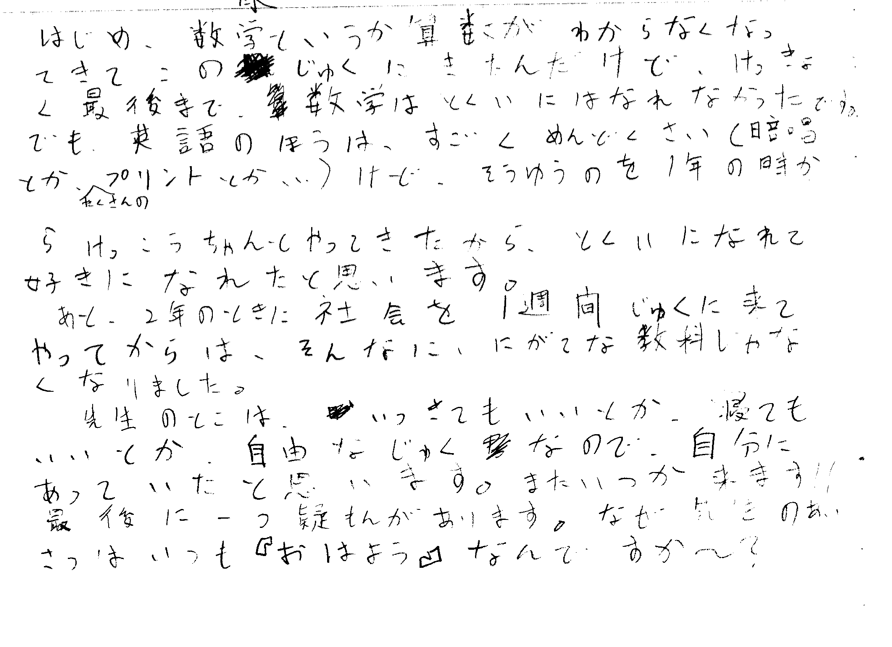 はじめ、数学というか算数がわからなくなっ
てきてこのじゅくにきたんだけど、けっきょ
く最後まで、数学はとくいにはなれなかったです。
でも、英語のほうは、すごくめんどくさい(暗唱
とか、たくさんのプリントとか…)けど、そうゆうのを1年の時か
らけっこうちゃんとやってきたから、とくいになれて
好きになれたと思います。
あと、2年のときに社会を1週間じゅくに来て
やってからは、そんなに、にがてな教科じゃな
くなりました。
先生のとこは、いつきてもいいとか、寝ても
いいとか、自由なじゅくなので、自分に
あっていたと思います。またいつか来ます!!
最後に一つ疑もんがあります。なぜ先生のあい
さつはいつも『おはよう』なんですか〜?